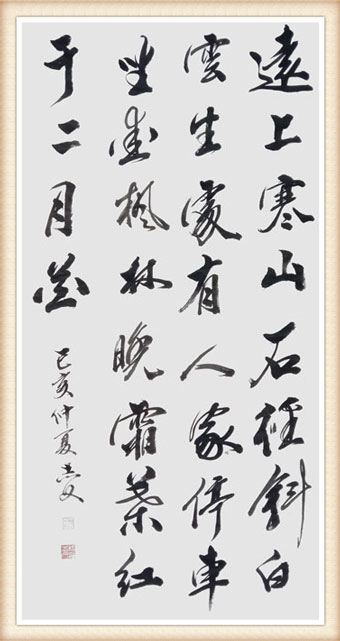 遠上寒山石徑斜白
雲生處有人家停車
坐愛楓林晚霜葉紅
于二月花
己亥仲夏